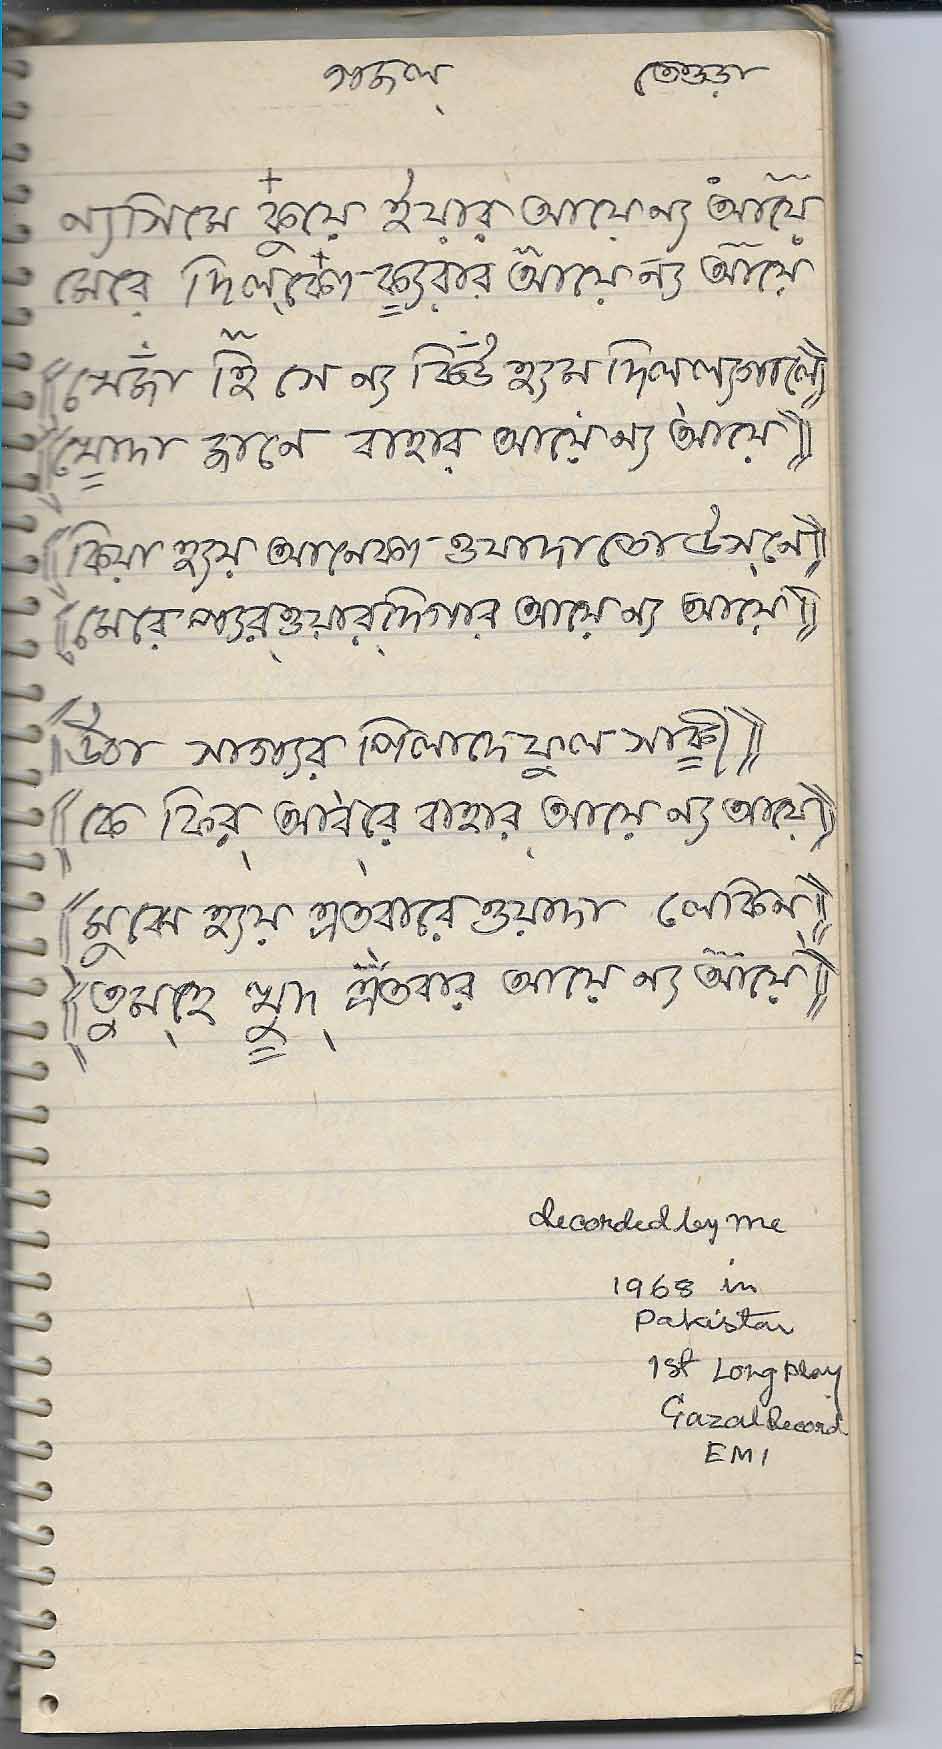 গজল্ তেওড়া
ন্যসিমে কুয়ে ইয়ার্ আয়ে ন্য আঁয়ে
মেরে দিল্‌কো ক্যরার আঁয়ে ন্য আঁয়ে
খেজাঁ হিঁ সে ন্য কিউঁ হ্যম দিল ল্যগালে
খোদা জানে বাহার আয়ে ন্য আয়ে
কিয়া হ্যয় আনেকা ওয়াদা তো উস্‌নে
মেরে প্যর্‌ওয়ার্‌দিগার আয়ে ন্য আয়ে
উঠা সাগ্যর পিলাদে ফুল সাকী
কে ফির্ আবরে বাহার্ আয়ে ন্য আয়ে
মুঝে হ্যয় এতবারে ওয়াদা লেকিন্
তুম্‌হে খুদ্ এতবার আয়ে ন্য আঁয়ে
Recorded by me
1968 in
Pakistan
1st Long play
Gazal Record
EMI